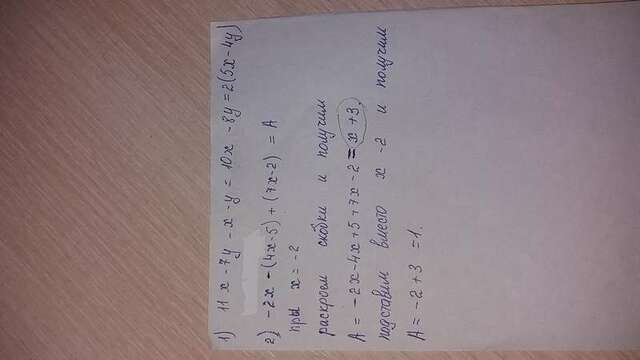 1) 11x - 7y - x - y = 10x - 8y = 2(5x - 4y)
2) -2x - (4x - 5) + (7x - 2) = A
при x = -2
раскроем скобки и получим
A = -2x - 4x + 5 + 7x - 2 = x + 3.
подставим вместо x -2 и получим
A = -2 + 3 = 1.